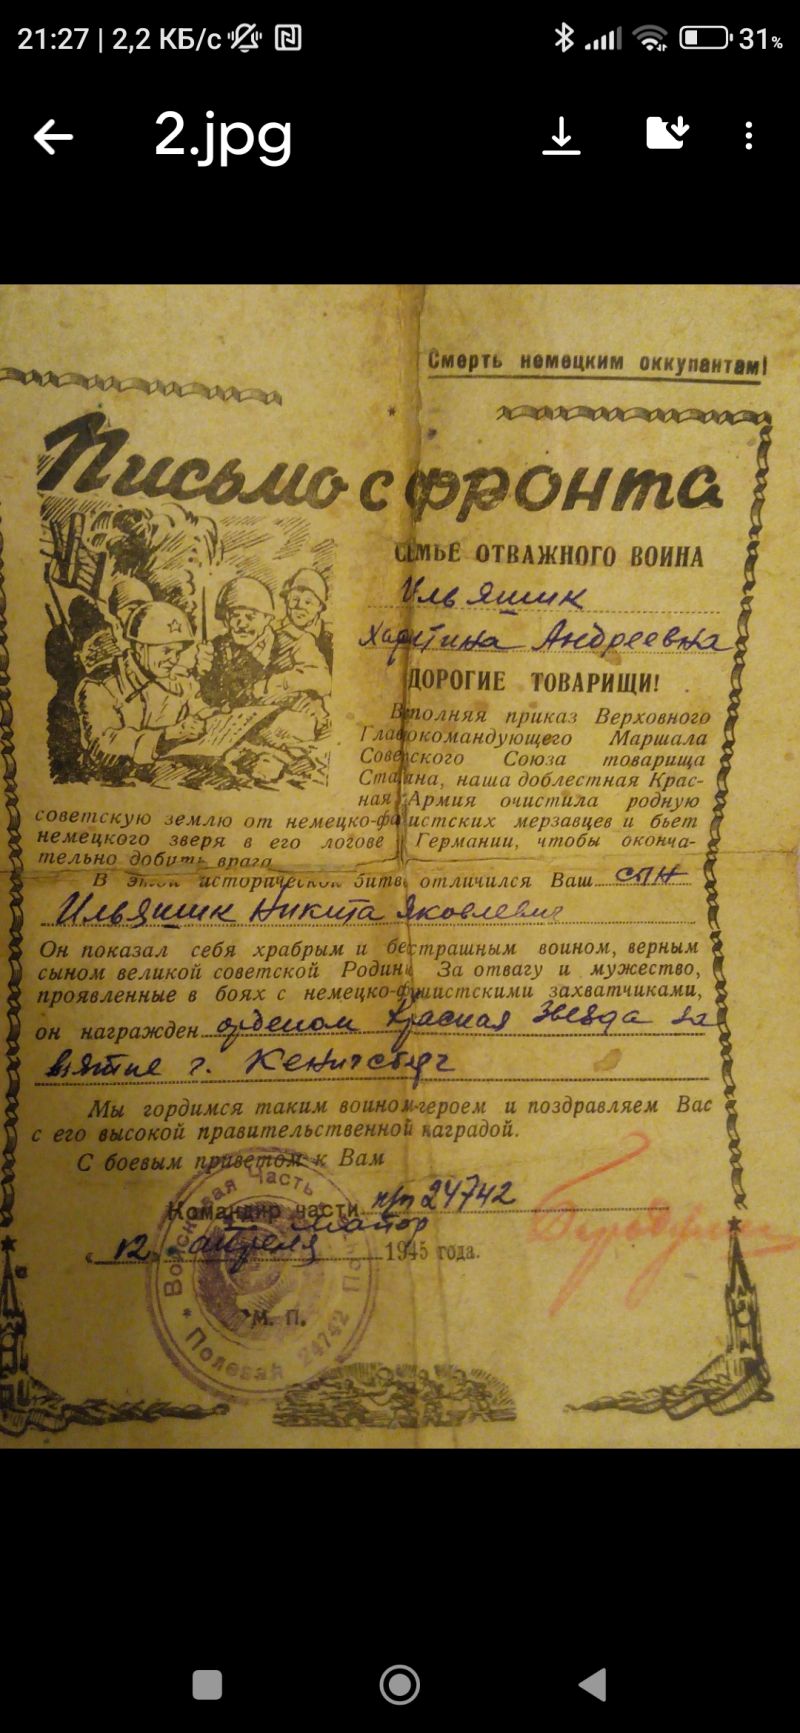 21:27 | 2,2 КБ/с
31%
2.jpg
Смерть немецким оккупантам!
Письмо с фронта
СЕМЬЕ ОТВАЖНОГО ВОИНА
Ильяшик
Харитина Андреевна
ДОРОГИЕ ТОВАРИЩИ!
Выполняя приказ Верховного
Главнокомандующего Маршала
Советского Союза товарища
Сталина, наша доблестная Крас-
ная Армия очистила родную
советскую землю от немецко-фашистских мерзавцев и бьет
немецкого зверя в его логове Германии, чтобы оконча-
тельно добить врага
В этой исторической битве отличился Ваш сын
Ильяшик Никита Яковлевич
Он показал себя храбрым и бесстрашным воином, верным
сыном великой советской Родины. За отвагу и мужество,
проявленные в боях с немецко-фашистскими захватчиками,
он награжден орденом Красная Звезда за
взятие г. Кенигсберг
Мы гордимся таким воином-героем и поздравляем Вас
с его высокой правительственной наградой.
С боевым приветом к Вам
Командир части п/п 24742
майор
„12“ апреля 1945 года.
М. П.
Войсковая Часть
Полевая 24742